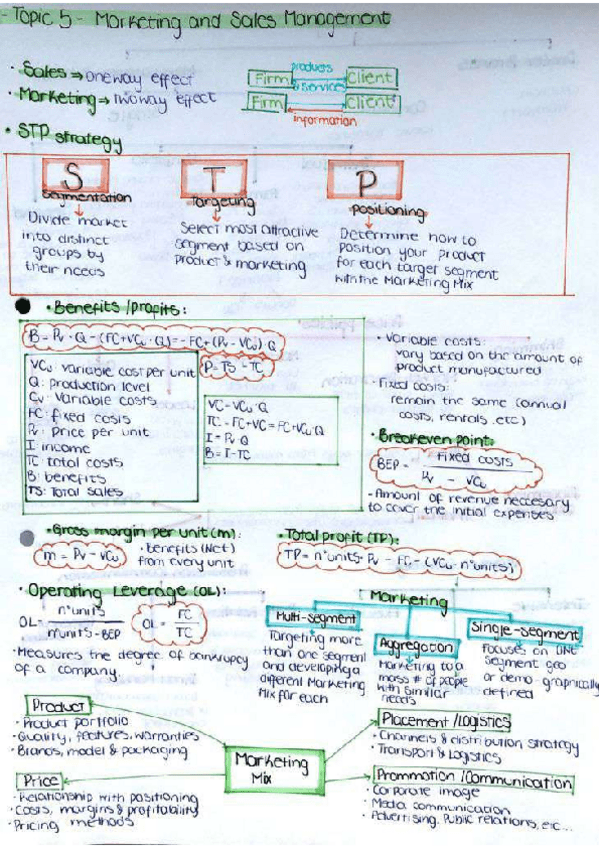 - Topic 5 - Marketing and Sales Management
• Sales ⇒ one way effect
Firm products & services Client
• Marketing → Two way effect
Firm Client
information
• STP strategy
S T P
segmentation Targeting positioning
Divide market
into distinct
groups by
their needs
Select most attractive
segment based on
product & marketing
Determine how to
position your product
for each target segment
with the Marketing Mix
• Benefits / profits:
B = Pv · Q - (FC + VCu · Q) = - FC + (Pv - VCu) · Q
P = TS - TC
VCu: variable cost per unit
Q: production level
Cv: Variable costs
FC: fixed costs
Pv: price per unit
I: income
TC: total costs
B: benefits
TS: Total sales
VC = VCu · Q
TC = FC + VC = FC + VCu · Q
I = Pv · Q
B = I - TC
• Variable costs:
vary based on the amount of
product manufactured
• Fixed costs:
remain the same (annual
costs, rentals, etc)
• Breakeven point:
BEP = Fixed costs
Pv - VCu
- Amount of revenue neccesary
to cover the initial expenses
• Gross margin per unit (m):
m = Pv - VCu
• benefits (Net)
from every unit
• Total profit (TP):
TP = n° units · Pv - FC - (VCu · n° units)
• Operating Leverage (OL):
OL = n° units
n° units - BEP
OL = FC
TC
• Measures the degree of bankrupcy
of a company.
Marketing
Multi-segment
Targeting more
than one segment
and developing a
different Marketing
Mix for each
Aggregation
Marketing to a
mass # of people
with similar
needs
Single-segment
Focuses on ONE
segment geo
or demo-graphically
defined
Product
• Product portfolio
• Quality, features, warranties
• Brands, model & packaging
Price
• Relationship with positioning
• Costs, margins & profitability
• Pricing methods
Marketing
Mix
Placement / Logistics
• Channels & distribution strategy
• Transport & Logistics
Prommotion / Communication
• Corporate image
• Media communication
• Advertising, Public relations, etc...